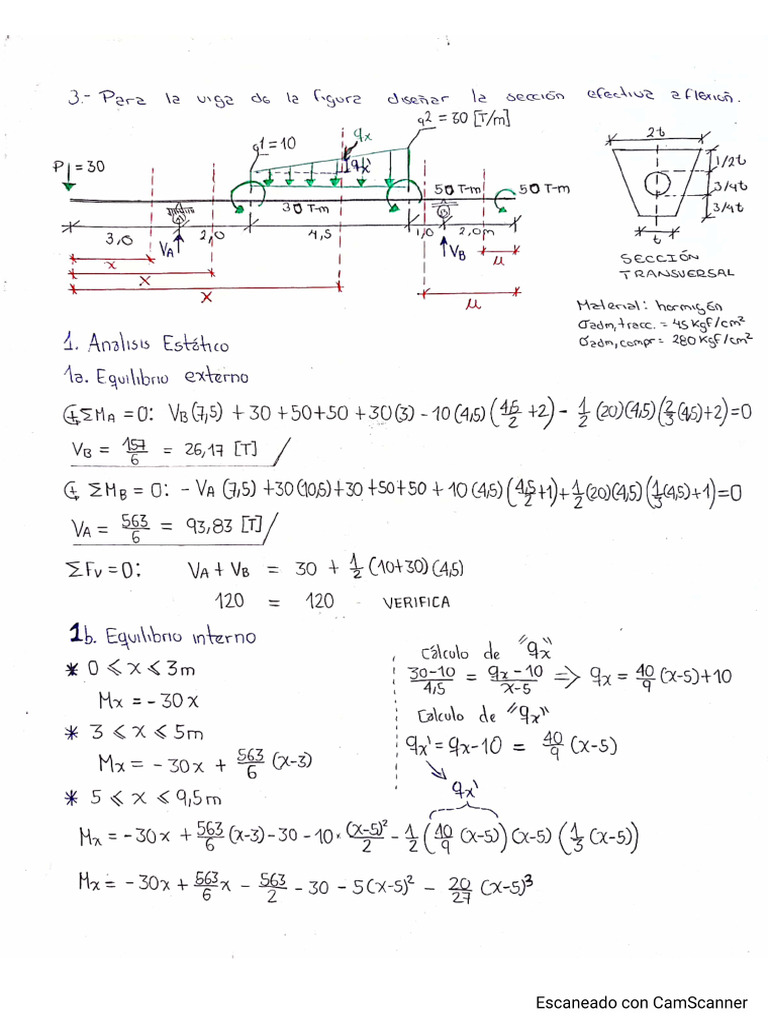 3.- Para la viga de la figura diseñar la sección efectiva a flexión.
q2 = 30 [T/m]
qx
q1 = 10
qx'
P = 30
30 T-m
50 T-m
50 T-m
3,0
VA
2,0
4,5
1,0
VB
2,0m
x
x
x
μ
μ
2t
1/2t
3/4t
3/4t
t
SECCIÓN
TRANSVERSAL
Material: hormigón
σadm,tracc. = 45 Kgf/cm²
σadm,compr = 280 Kgf/cm²
1. Analisis Estático
1a. Equilibrio externo
ΣMA = 0: VB(7,5) + 30 + 50 + 50 + 30(3) - 10(4,5)(4,5/2 + 2) - 1/2 (20)(4,5)(2/3 (4,5) + 2) = 0
VB = 157/6 = 26,17 [T]
ΣMB = 0: - VA (7,5) + 30(10,5) + 30 + 50 + 50 + 10(4,5)(4,5/2 + 1) + 1/2 (20)(4,5)(1/3 (4,5) + 1) = 0
VA = 563/6 = 93,83 [T]
ΣFv = 0: VA + VB = 30 + 1/2 (10+30)(4,5)
120 = 120 VERIFICA
1b. Equilibrio interno
* 0 ≤ x ≤ 3m
Mx = - 30x
* 3 ≤ x ≤ 5m
Mx = - 30x + 563/6 (x-3)
* 5 ≤ x ≤ 9,5m
Cálculo de "qx"
30-10/4,5 = qx-10/x-5 => qx = 40/9 (x-5)+10
Calculo de "qx"
qx' = qx-10 = 40/9 (x-5)
qx'
Mx = -30x + 563/6 (x-3) - 30 - 10 * (x-5)²/2 - 1/2 (40/9 (x-5)) (x-5) (1/3 (x-5))
Mx = - 30x + 563/6 x - 563/2 - 30 - 5(x-5)² - 20/27 (x-5)³
Escaneado con CamScanner